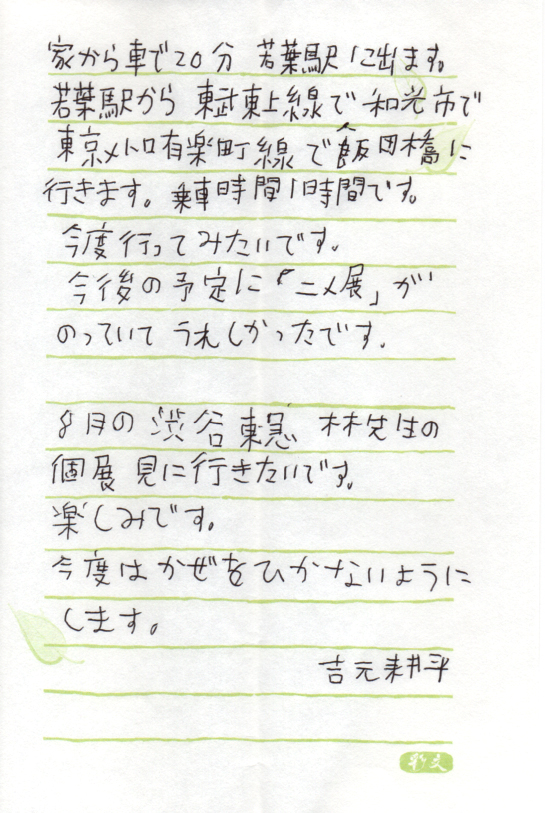 家から車で20分 若葉駅に出ます。
若葉駅から 東武東上線で 和光市で
東京メトロ有楽町線で飯田橋に
行きます。乗車時間1時間です。
今度行ってみたいです。
今後の予定に「ニメ展」が
のっていて うれしかったです。
8月の 渋谷東急 林先生の
個展 見に行きたいです。
楽しみです。
今度はかぜをひかないように
します。
吉元耕平
彩文